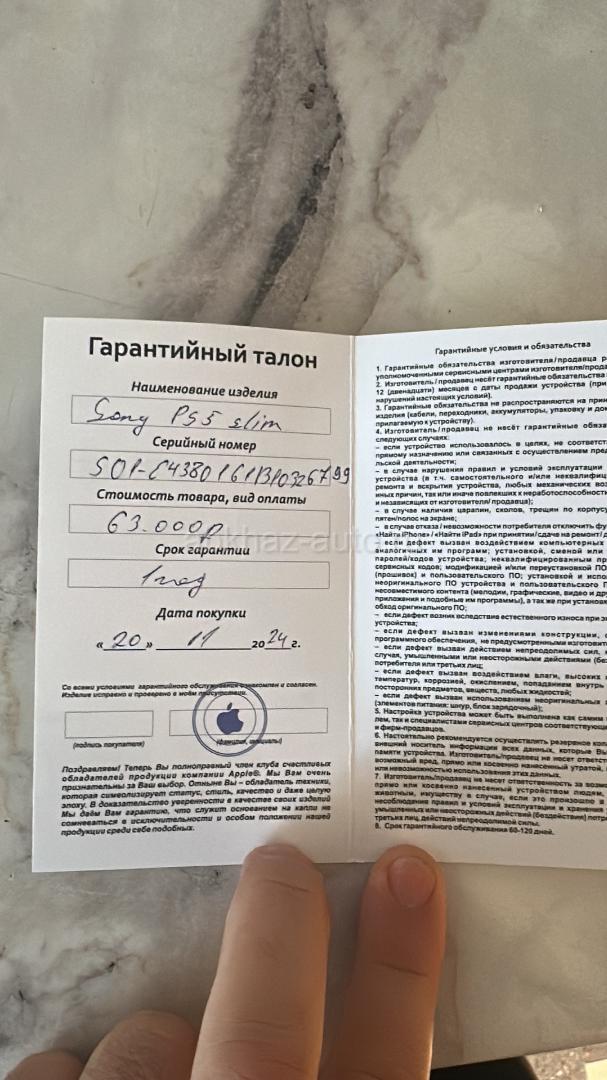 Гарантийный талон
Наименование изделия
Sony PS5 slim
Серийный номер
S01-
Стоимость товара, вид оплаты
63.000р
Срок гарантии
1 год
Дата покупки
« 20 » 11 20 24 г.
Со всеми условиями гарантийного обслуживания ознакомлен и согласен.
Изделие исправно и проверено в моём присутствии.
(подпись покупателя) (фамилия, инициалы)
Поздравляем! Теперь Вы полноправный член клуба счастливых
обладателей продукции компании Apple®. Мы Вам очень
признательны за Ваш выбор. Отныне Вы – обладатель техники,
которая символизирует статус, стиль, качество и даже целую
эпоху. В доказательство уверенности в качестве своих изделий
Мы даём Вам гарантию, что служит основанием на капли не
сомневаться в исключительности и особом положении нашей
продукции среди себе подобных.
Гарантийные условия и обязательства
1. Гарантийные обязательства изготовителя/продавца
уполномоченными сервисными центрами изготовителя/
2. Изготовитель/продавец несёт гарантийные обязательства
12 (двенадцати) месяцев с даты продажи устройства (при
нарушений настоящих условий).
3. Гарантийные обязательства не распространяются на
изделия (кабели, переходники, аккумуляторы, упаковку и
прилагаемую к устройству).
4. Изготовитель/продавец не несёт гарантийные
следующих случаях:
– если устройство использовалось в целях, не
прямому назначению или связанных с осуществлением
льской деятельности;
– в случае нарушения правил и условий эксплуатации
устройства (в т.ч. самостоятельного и/или
ремонта и вскрытия устройства, любых механических
иных причин, так или иначе повлекших к
и независящих от изготовителя/продавца);
– в случае наличия царапин, сколов, трещин по
пятен/полос на экране;
– в случае отказа / невозможности потребителя отключить
«Найти iPhone» / «Найти iPad» при принятии/сдаче на
– если дефект вызван воздействием компьютерных
аналогичных им программ; установкой, сменой или
паролей/кодов устройства; неквалифицированным
сервисных кодов; модификацией и/или переустановкой ПО
(прошивок) и пользовательского ПО; установкой и
неоригинального ПО устройства и пользовательского
несовместимого контента (мелодии, графические, видео и
приложения и подобные им программы), а также при
обход оригинального ПО;
– если дефект возник вследствие естественного износа при
устройства;
– если дефект вызван изменениями конструкции,
программного обеспечения, не предусмотренными
– если дефект вызван действием непреодолимых сил,
случая, умышленными или неосторожными действиями
потребителя или третьих лиц;
– если дефект вызван воздействием влаги, высоких
температур, коррозией, окислением, попаданием внутрь
посторонних предметов, веществ, любых жидкостей;
– если дефект вызван использованием неоригинальных
(элементов питания: шнур, блок зарядочный);
5. Настройка устройства может быть выполнена как самим
лем, так и специалистами сервисных центров
и фирм-продавцов.
6. Настоятельно рекомендуется осуществлять резервное
внешний носитель информации всех данных, которые
памяти устройства. Изготовитель/продавец не несет
возможный вред, прямо или косвенно нанесенный утратой,
или невозможностью использования этих данных.
7. Изготовитель/продавец не несет ответственность за
прямо или косвенно нанесенный устройством людям,
животным, имуществу в случае, если это произошло в
несоблюдения правил и условий эксплуатации и хранения
умышленных или неосторожных действий (бездействия)
третьих лиц, действий непреодолимой силы.
8. Срок гарантийного обслуживания 60-120 дней.
abkhaz-auto